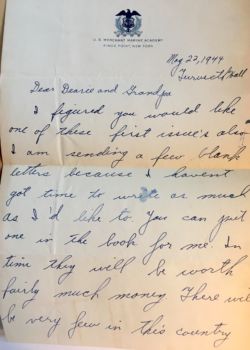 U. S. MERCHANT MARINE ACADEMY
KINGS POINT, NEW YORK
May 22, 1944
Hall
Dear Dearie and Grandpa
I figured you would like
one of these first issue's also
I am sending a few blank
letters because I havent
got time to write as much
as I'd like to. You can put
one in the book for me. In
time they will be worth
fairly much money. There will
be very few in this country